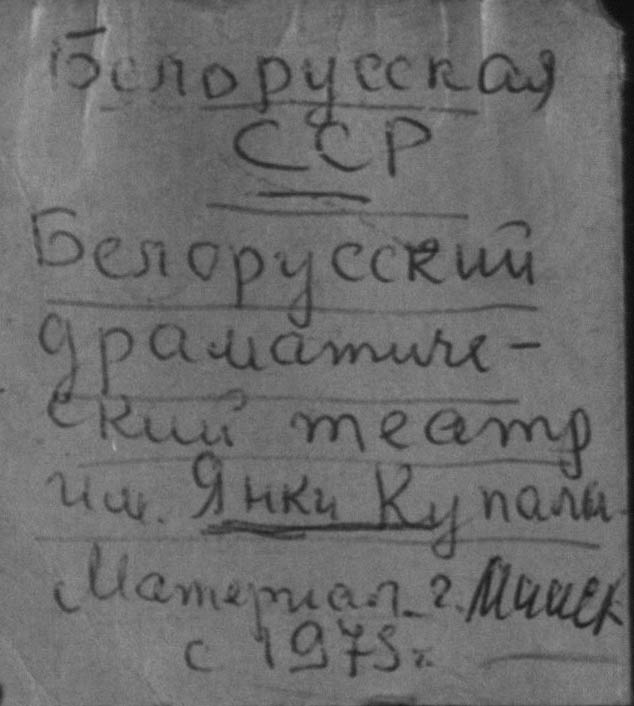 Белорусская
ССР
Белорусский
драматиче-
ский театр
им. Янки Купалы
Материал г. Минск
с 1975г.